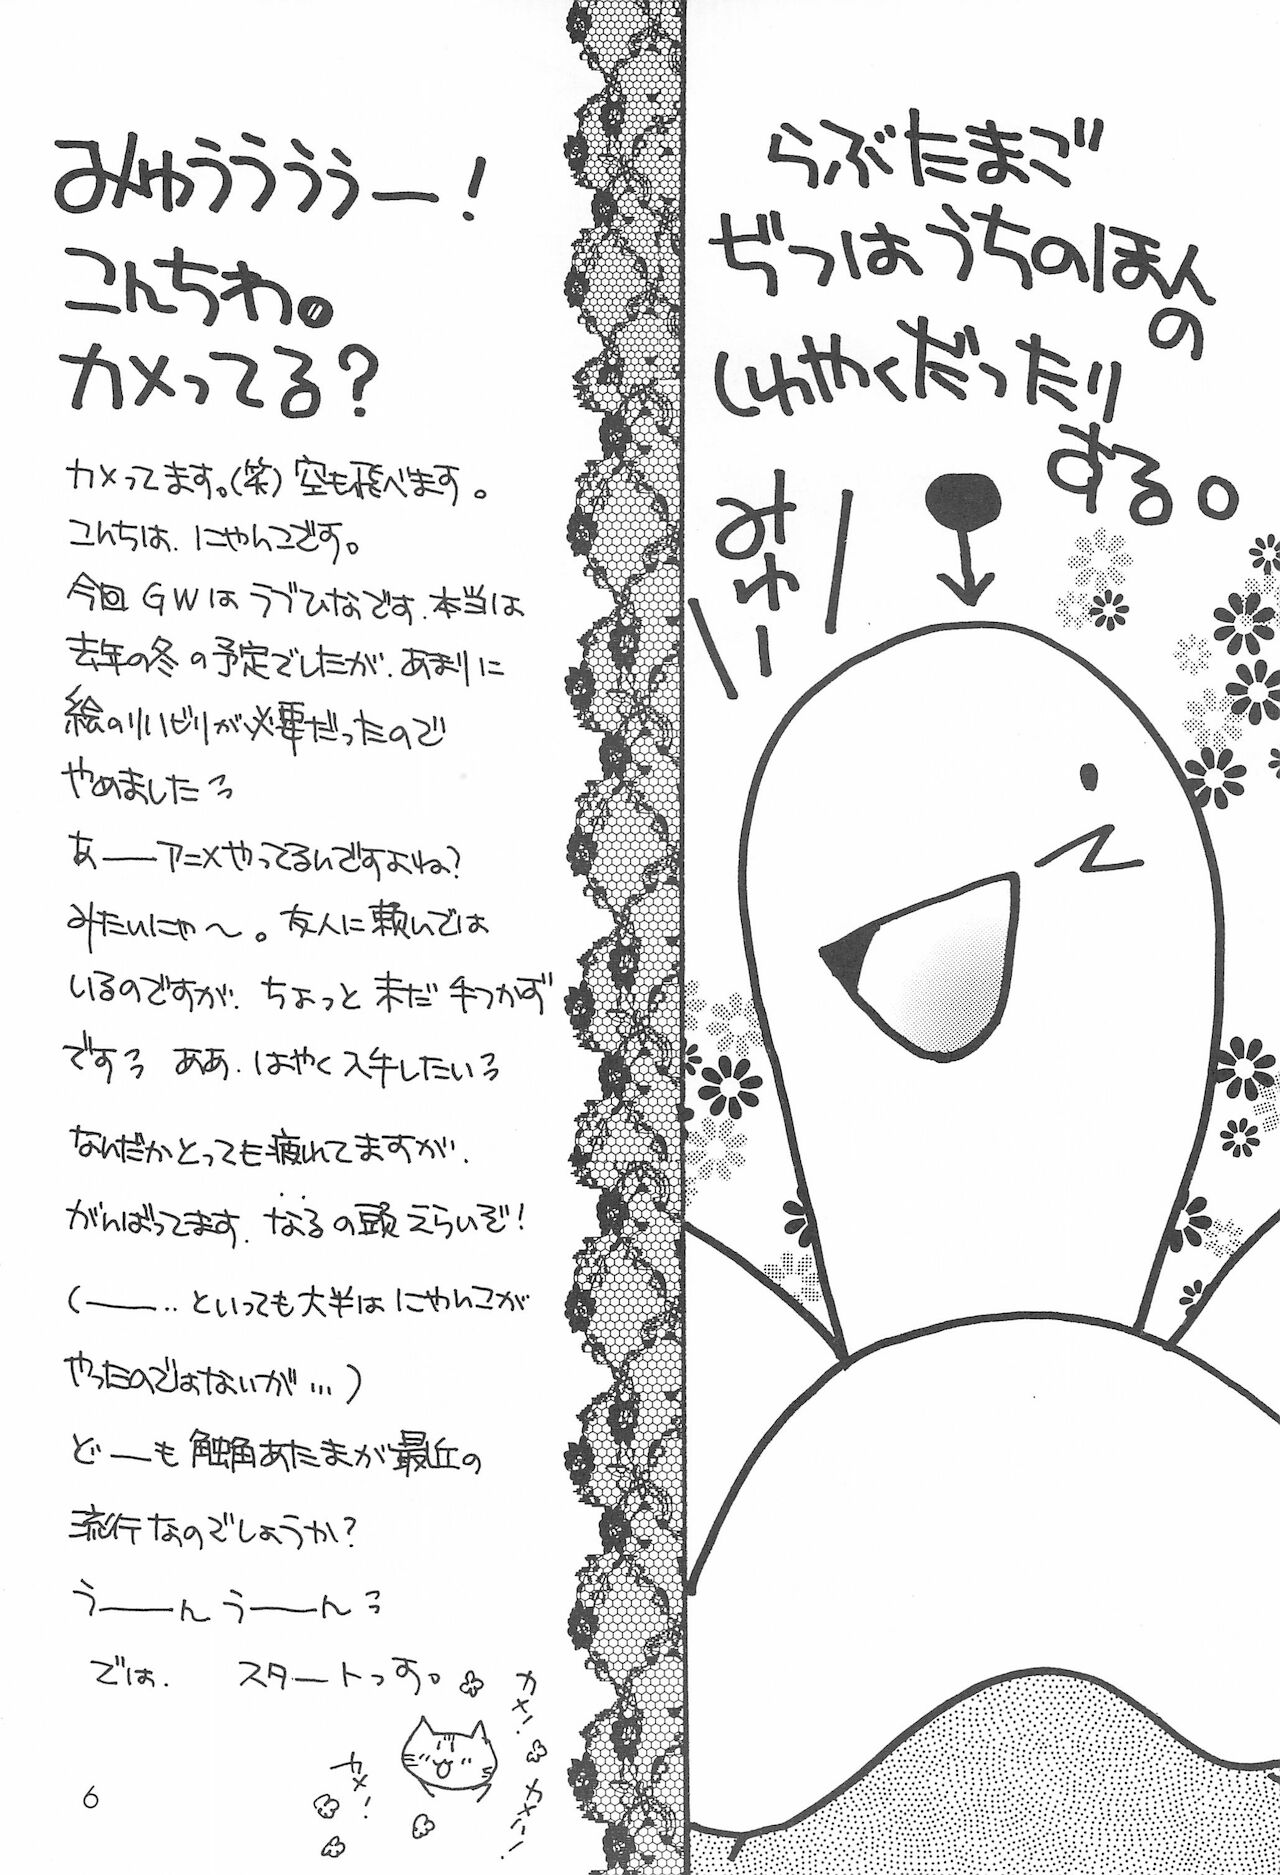 らぶたまご
ぢつはうちのほんの
しゅやくだったり
する。
みゅー
みゅぅぅぅぅー！
こんちわ。
カメってる？
カメってます。(笑) 空も飛べます。
こんちは、にゃんこです。
今回GWはラブひなです。本当は
去年の冬の予定でしたが、あまりに
絵のリハビリが必要だったので
やめましたっ
あーーアニメやってるんですよね？
みたいにゃ〜。友人に頼んでは
いるのですが、ちょっと未だ手つかず
ですっ ああ、はやく入手したいっ
なんだかとっても疲れてますが、
がんばってます。なるの頭えらいぞ！
(ーー‥といっても大半はにゃんこが
やったのではないが…)
どーも触角あたまが最近の
流行なのでしょうか？
うーーん うーーんっ
では、 スタートっす。
カメ！
カメ！
カメー！
6